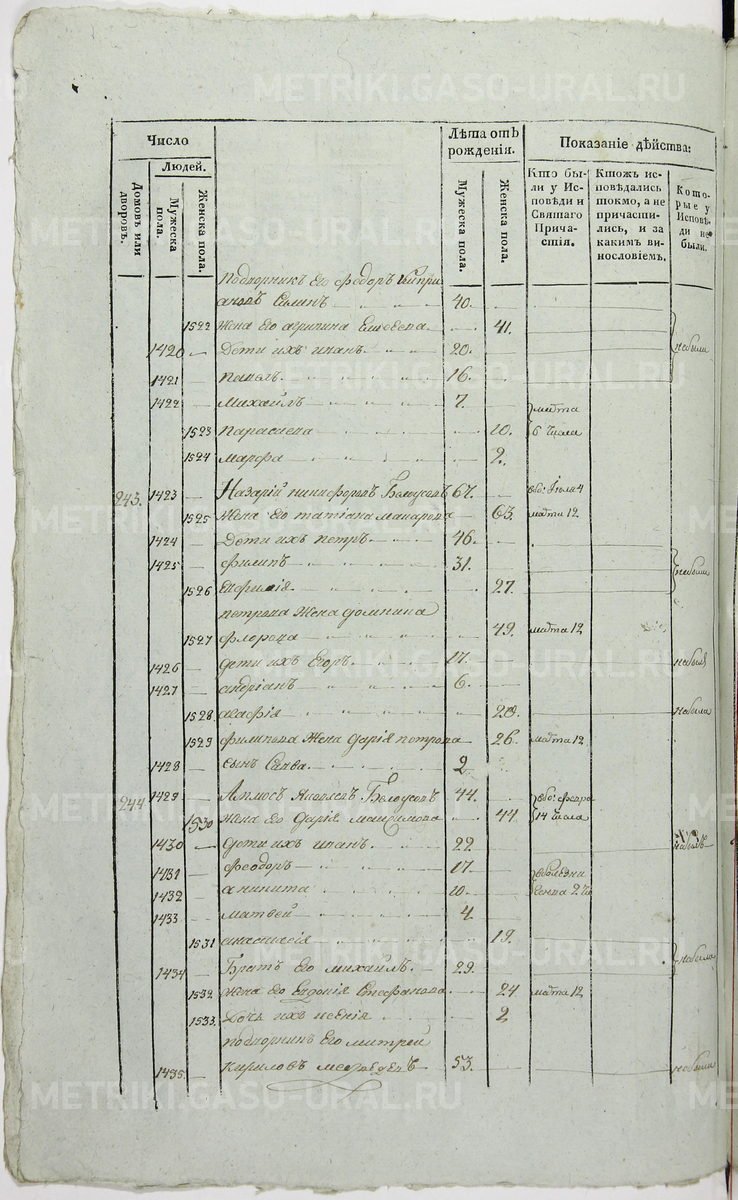 METRIKI.GASO-URAL.RU
Число
Людей.
Домовъ или дворовъ.
Мужеска пола.
Женска пола.
Лѣта отъ рожденія.
Мужеска пола.
Женска пола.
Показаніе дѣйства:
Кто бы-
ли у Ис-
повѣди и
Святаго
Прича-
стія.
Ктожъ ис-
повѣдались
токмо, а не
причасти-
лись, и за
какимъ ви-
нословіемъ.
Кото-
рые у
Исповѣ-
ди не
были.
Подворникъ Его Федоръ Кипри
ановъ Силинъ 40.
1522 Жена Его агрипина Елисеева 41.
1420 Дети ихъ иванъ 20. небыли
1421 павелъ 16.
1422 михайлъ 7. марта
1523 парасаева 10. 6 числа
1524 марфа 2.
243. 1423 Назарий никифоровъ Белоусовъ 67. 4
1525 Жена Его татіана макарова 63. марта 12
1424 Дети ихъ петръ 46.
1425 филипъ 31. небыли
1526 Ефимія 27.
петрова Жена домнина
1527 флорова 49. марта 12
1426 дети ихъ Егоръ 17. небылъ
1427 андріанъ 6.
1528 агафія 20. небыла
1529 филипова Жена дарія петрова 26. марта 12
1428 сынъ Савва 2
244 1429 Амосъ Яковлевъ Белоусовъ 44. февра
1530 Жена Его Дарія максимова 44. 14 числа
1430 дети ихъ иванъ 22. небылъ
1431 Феодоръ 17.
1432 аникита 10.
1433 матвей 4
1531 анастасія 19.
1434 Братъ Его михайлъ 29. небыли
1532 Жена Его Евдокія Стефанова 24 марта 12
1533. Дочь ихъ ксенія 2
подворникъ Его митрей
1435 Кириловъ 53. небыли